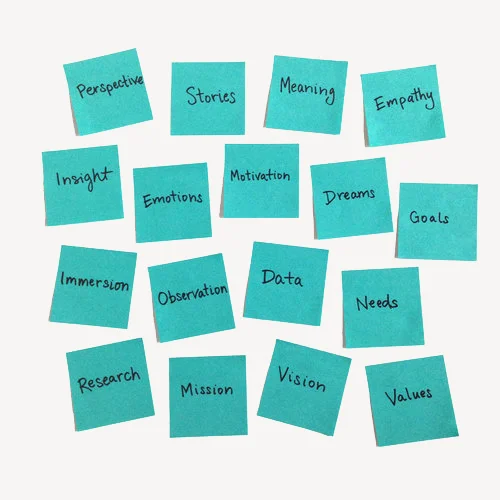 Perspective
Stories
Meaning
Empathy
Insight
Emotions
Motivation
Dreams
Goals
Immersion
Observation
Data
Needs
Research
Mission
Vision
Values